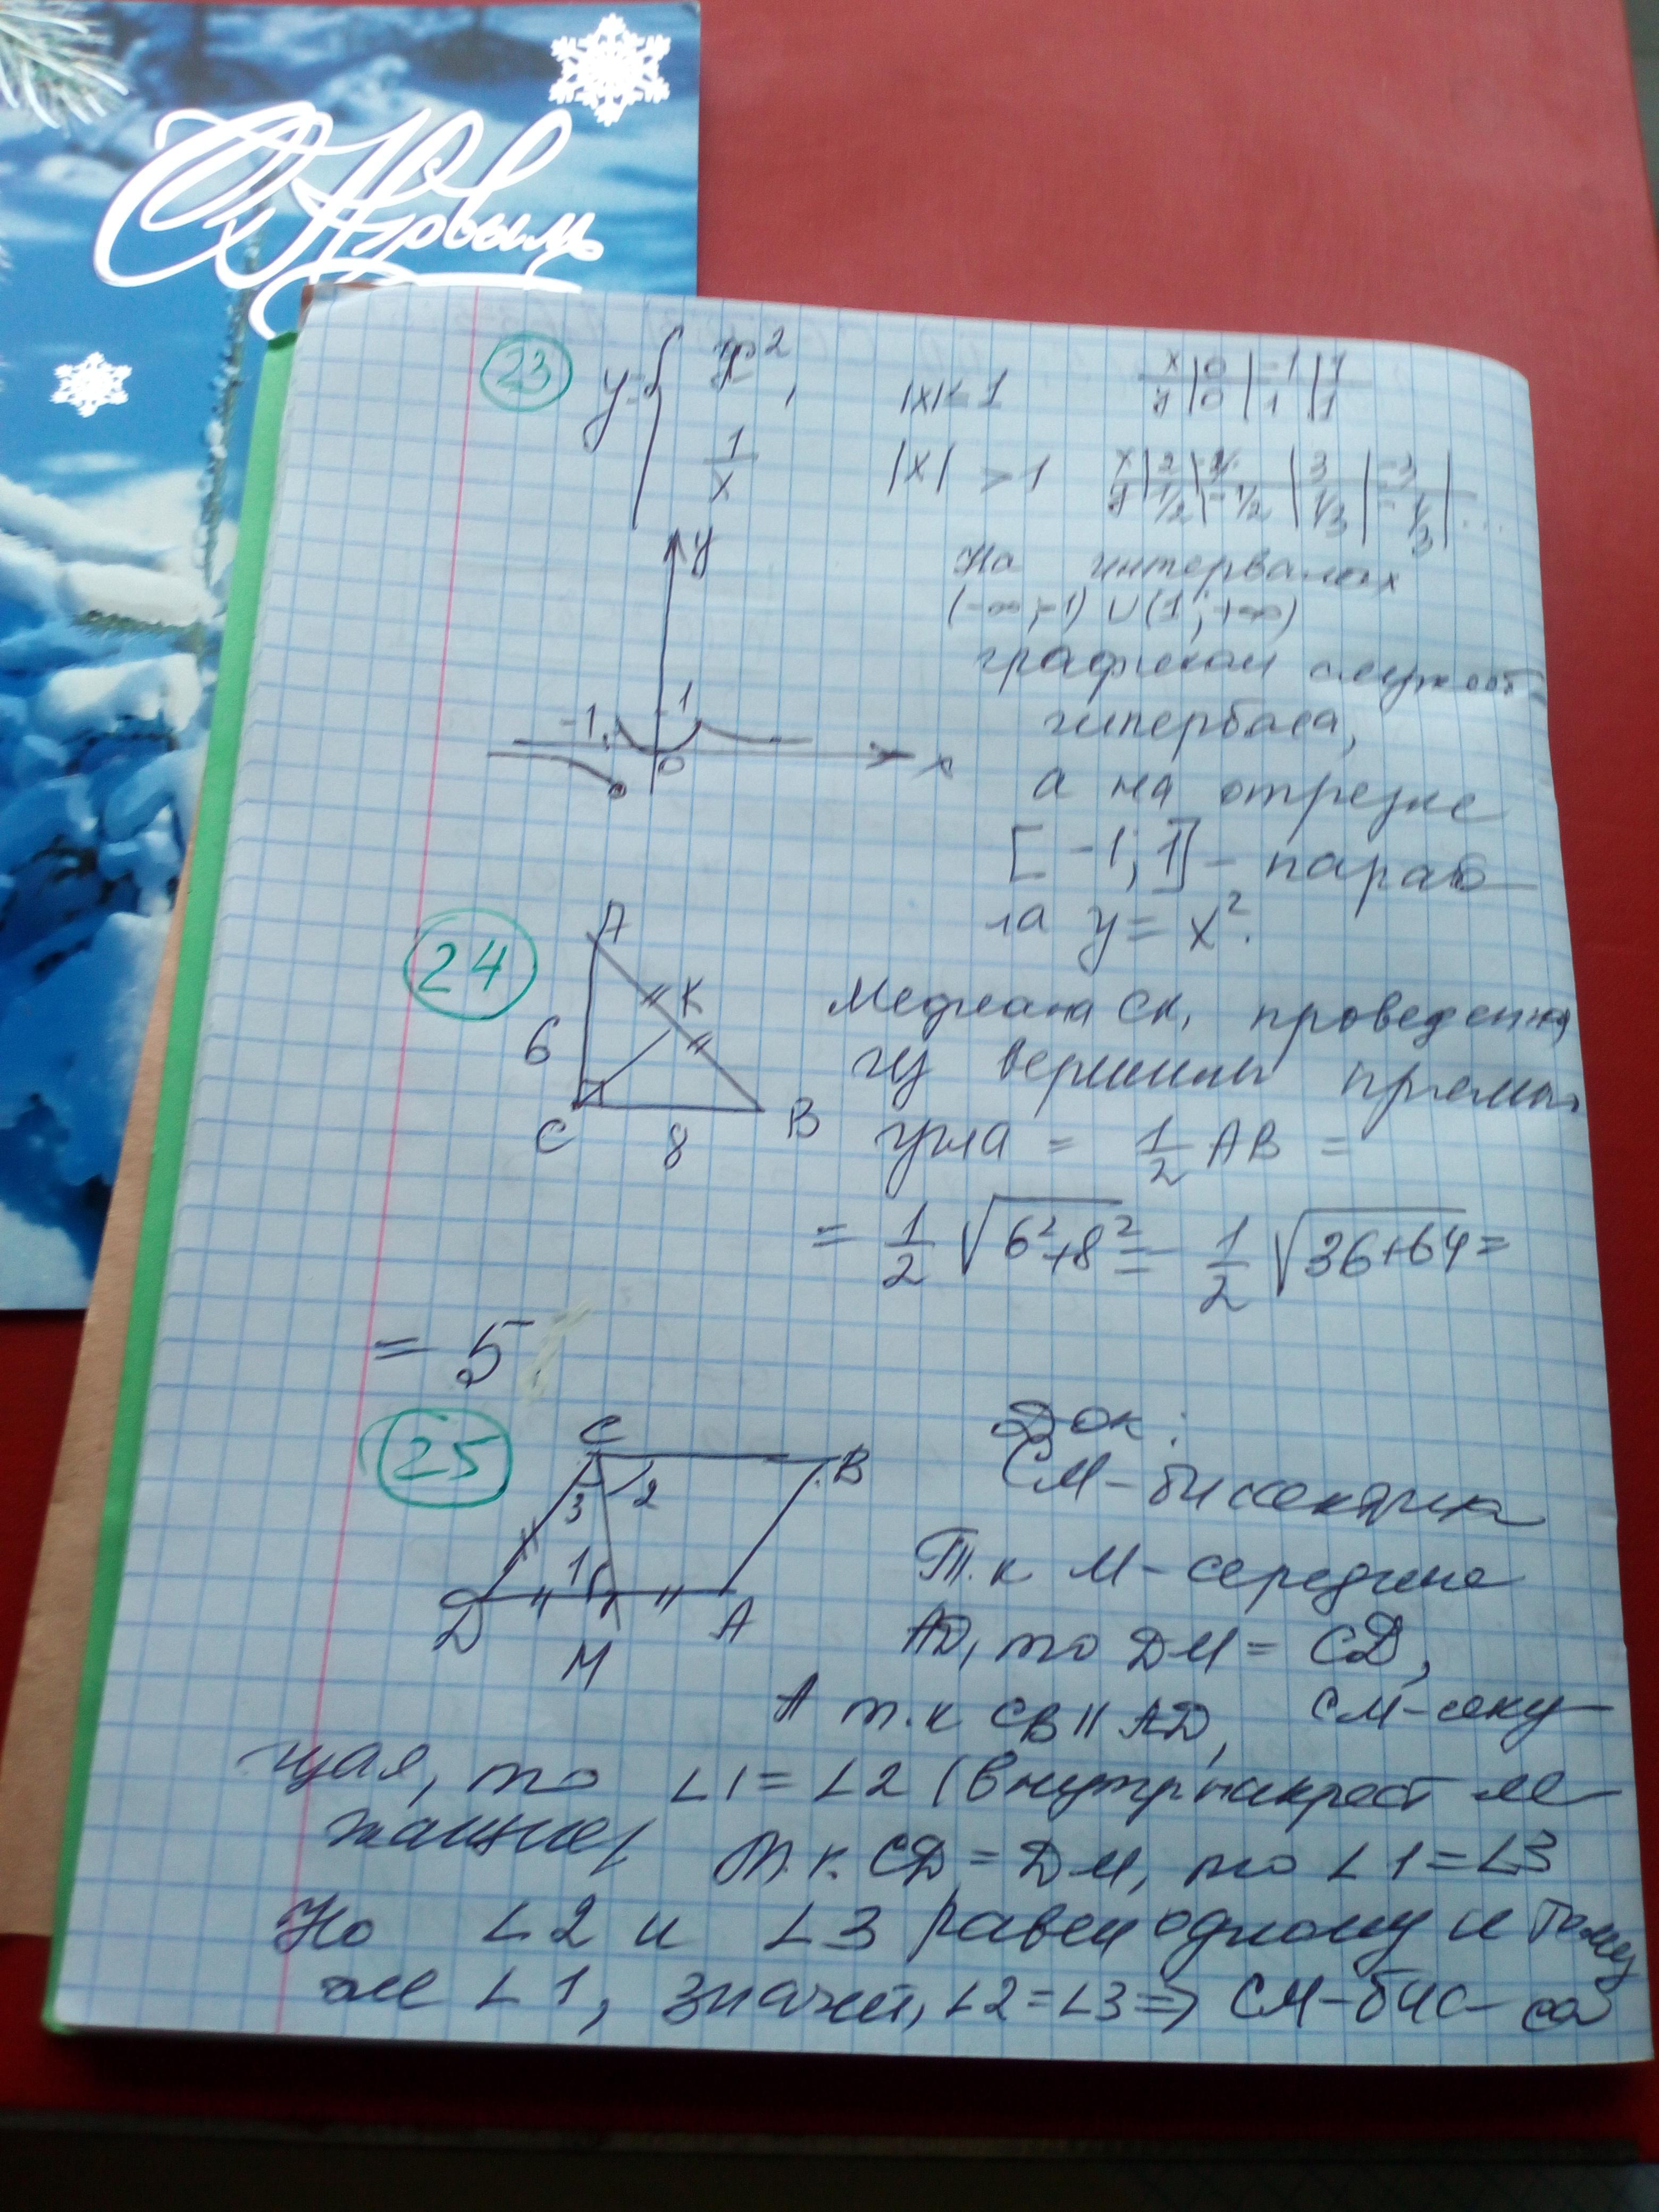 С Новым
23 y = { x², |x| < 1
x | 0 | -1 | 1
y | 0 | 1 | 1
1/x |x| > 1
x | 2 | -2 | 3 | -3 |
y | 1/2 | -1/2 | 1/3 | -1/3 | ...
y
-1 1
0 x
На интервалах
(-∞; -1) ∪ (1; +∞)
графиком служит
гипербола,
а на отрезке
[-1; 1] - парабо-
ла y = x².
24
A
K
6
C 8 B
Медиана CK, проведенная
из вершины прямого
угла = 1/2 AB =
= 1/2 √6²+8² = 1/2 √36+64 =
= 5
25
C B
3 2
1
D M A
Док:
CM - биссектриса
Т.к M - середина
AD, то DM = CD,
А т.к CB || AD, CM - секу-
щая, то ∠1 = ∠2 (внутр накрест ле-
жащие)
т.к. CD = DM, то ∠1 = ∠3
Но ∠2 и ∠3 равен одному и тому
же ∠1, значит, ∠2 = ∠3 => CM - бис-са